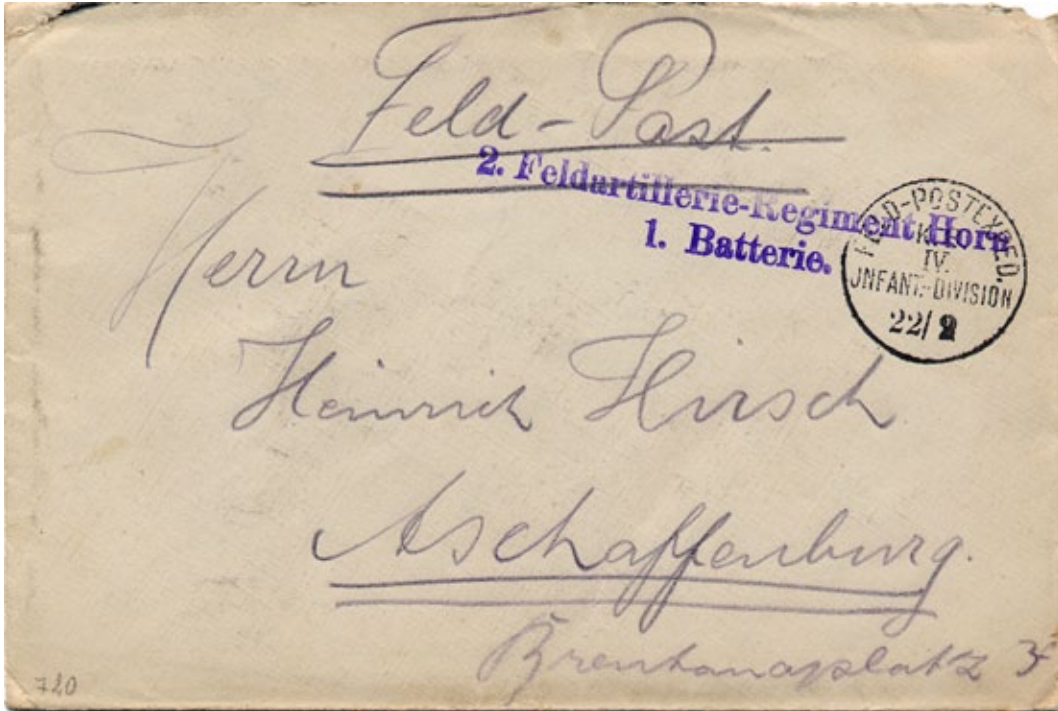 Feld-Post.
2. Feldartillerie-Regiment Horn
1. Batterie.
FELD-POSTEXPED.
K.B.
IV.
JNFANT.-DIVISION
22/ 2
Herrn
Heinrich Hirsch
Aschaffenburg.
Brentanoplatz
720